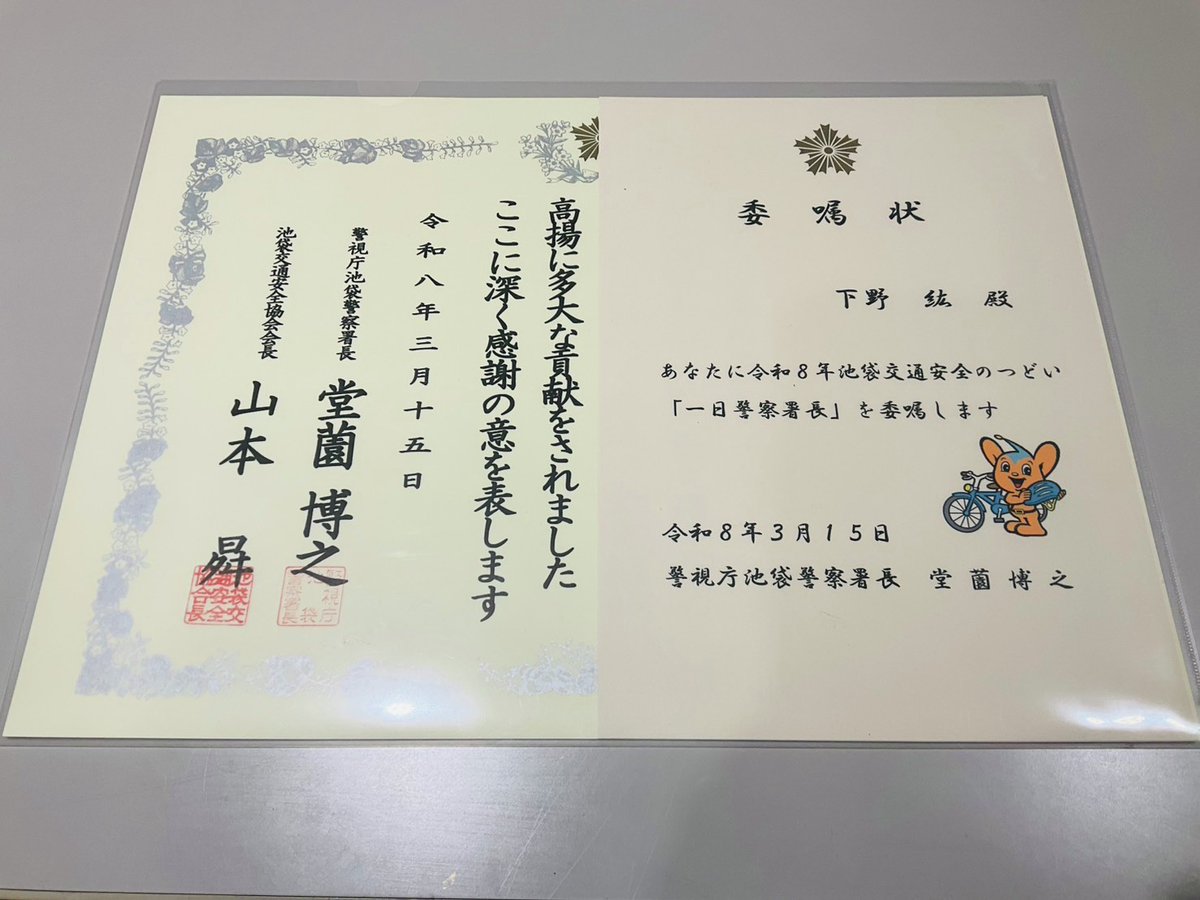 委嘱状
下野 紘 殿
あなたに令和8年池袋交通安全のつどい
「一日警察署長」を委嘱します
令和8年3月15日
警視庁池袋警察署長 堂薗博之
高揚に多大な貢献をされました
ここに深く感謝の意を表します
令和八年三月十五日
警視庁池袋警察署長 堂薗 博之
池袋交通安全協会会長 山本 昇
警視庁池袋警察署長